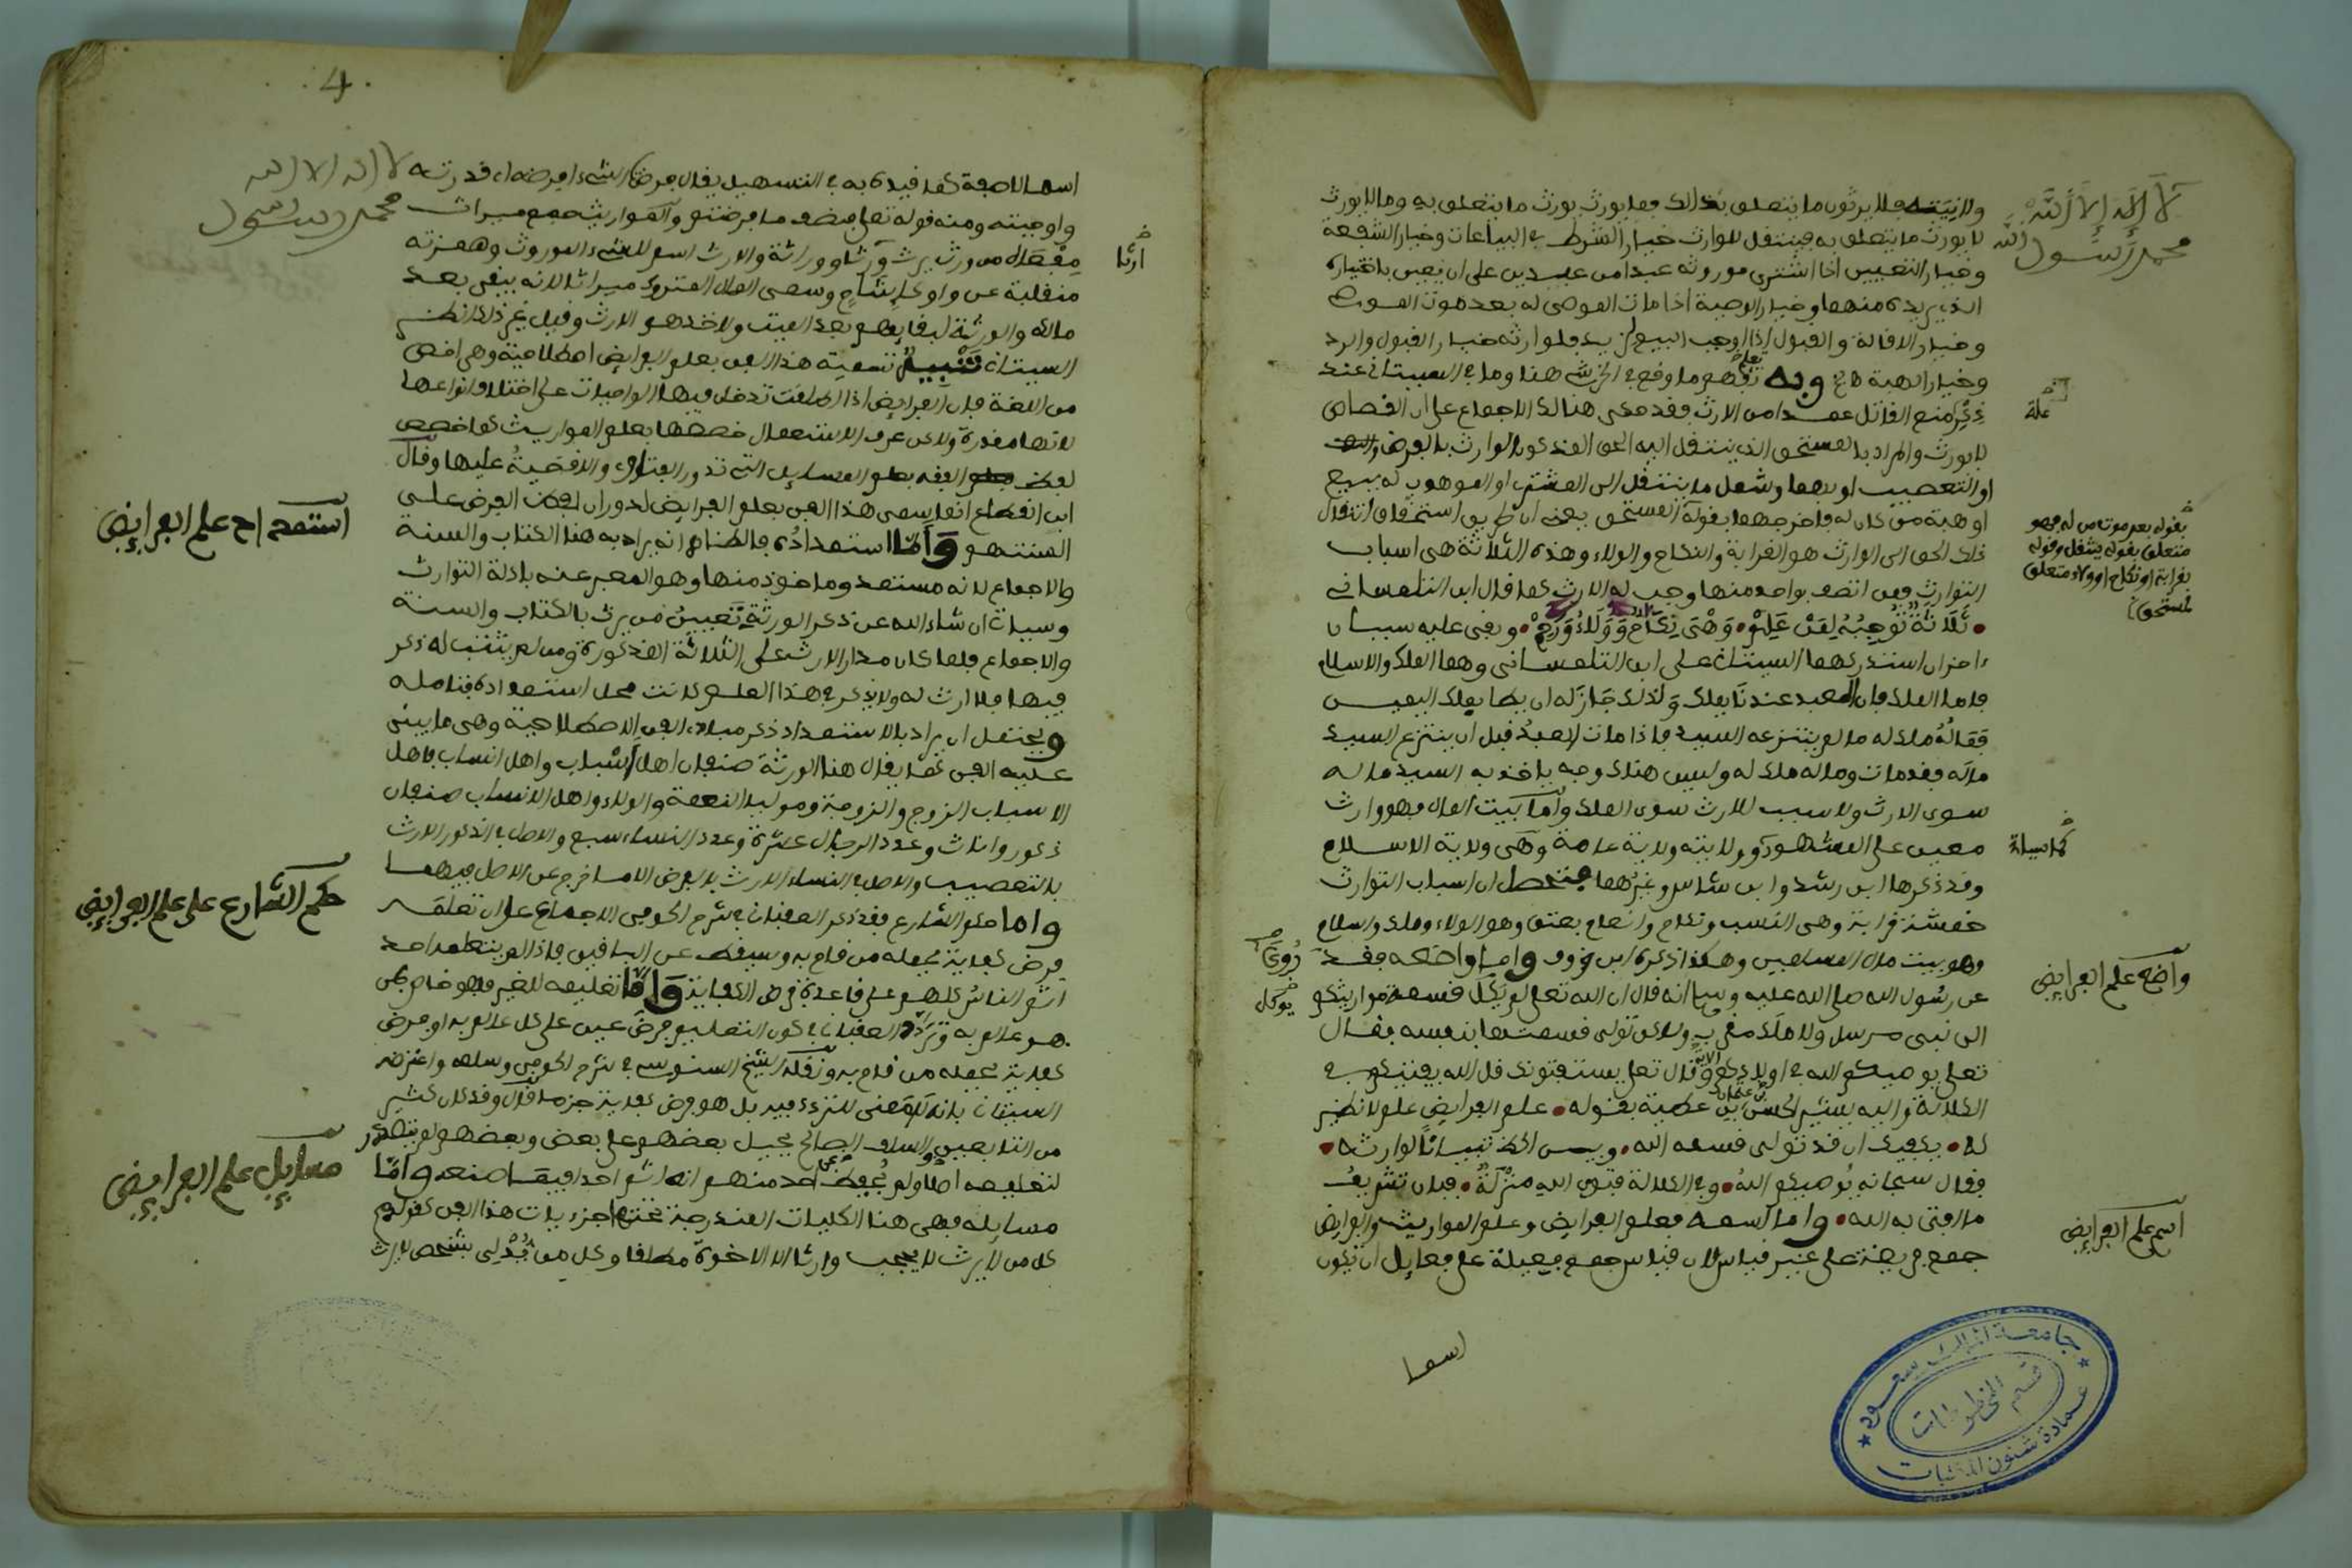 لا إله إلا الله
محمد رسول الله
ولا نيته فلا يرثون ما يتعلق بذلك فما يورث يورث ما يتعلق به وما لا يورث
لا يورث ما يتعلق به فينتقل للوارث خيار الشرط في البياعات وخيار الشفعة
وخيار التعيين اذا اشترى موروثه عبدا من عبدين على ان يعين باختياره
الذي يريده منهما وخيار الوصية اذا مات الموصى له بعد موت الموصي
وخيار الاقالة والقبول اذا اوجب البيع لزيد فلوارثه خيار القبول والرد
وخيار الهبة وبه تعلم ما وقع في الخرشي هنا وما في السيتاني عند
ذكر منع القاتل عمدا من الارث فقد حكى هنالك الاجماع على ان القصاص
علة
لا يورث والمراد بالمستحق الذي ينتقل اليه الحق المذكور الوارث بالفرض
او التعصيب او بهما وشمل ما ينتقل الى المشتري او الموهوب له ببيع
او هبة ممن كان له فاخرجهما بقوله المستحق بمعنى ان طريق استحقاق انتقال
بقوله بعد موت من له فهو
متعلق بقوله ينتقل وقوله
بقرابة او نكاح او ولاء متعلق
بالمستحق
ذلك الحق الى الوارث هو القرابة والنكاح والولاء وهذه الثلاثة هي اسباب
التوارث فمن اتصف بواحد منها وجب له الارث كما قال ابن التلمساني
ثلاثة توجبه لمن علم وهي نكاح وولاء ورحم وبقي عليه سببان
ءاخران استدركهما السيتاني على ابن التلمساني وهما الملك والاسلام
فاما الملك فان العبد عندنا يملك ولذلك جاز له ان يطا بملك اليمين
فماله ملك له ما لم ينتزعه السيد فاذا مات العبد قبل ان ينتزع السيد
ماله فقد مات وماله ملك له وليس هناك وجه ياخذ به السيد ماله
سوى الارث ولا سبب للارث سوى الملك واما بيت المال فهو وارث
معين على المشهور وولايته ولاية عامة وهي ولاية الاسلام
كما سياتي
وقد ذكرها ابن رشد وابن شاس وغيرهما فتحصل ان اسباب التوارث
خمسة قرابة وهي النسب ونكاح وانعام بعتق وهو الولاء وملك واسلام
وهو بيت مال المسلمين وهكذا ذكره ابن خروف واما واضعه فقد
روي
واضع علم الفرايض
عن رسول الله صلى الله عليه وسلم انه قال ان الله تعلى لم يكل قسمة مواريثكم
يوكل
الى نبي مرسل ولا ملك مقرب ولاكن تولى قسمتها بنفسه فقال
تعلى يوصيكم الله في اولادكم الاية وقال تعلى يستفتونك قل الله يفتيكم في
الكلالة واليه يشير الحسن بن عثمان بن عطية بقوله علم الفرايض علم لا نظير
له يكفيك ان قد تولى قسمه الله وبين الحظ تبيانا لوارثه
فقال سبحانه يوصيكم الله وفي الكلالة فتوى الله منزلة فبان تشريف
ما افتى به الله واما اسمه فعلم الفرايض وعلم المواريث والفرايض
اسم علم الفرايض
جمع فريضة على غير قياس لان قياس جمع فعيلة على فعايل ان تكون
اسما
4
لا اله الا الله
محمد رسول
اسما لا صفة كما قيده به في التسهيل يقال فرض الشيء افرضه اي قدرته
واوجبته ومنه قوله تعلى فنصف ما فرضتم والمواريث جمع ميراث
مفعال من ورث يرث ورثا ووراثة والارث اسم للشيء الموروث وهمزته
ارثا
منقلبة عن واو كإشاح وسمي المال المتروك ميراثا لانه يبقى بعد
مالكه والورثة لبقايهم بعد الميت ولاخذهم الارث وقيل غير ذلك انظر
السيتاني تنبيه تسمية هذا الفن بعلم الفرايض اصطلاحية وهي اخص
من اللغة فان الفرايض اذا اطلقت تدخل فيها الواجبات على اختلاف انواعها
لانها مقدرة ولاكن عرف الاستعمال خصصها بعلم المواريث كما خصص
لفظ الفقه بعلم المسايل التي تدور الفتاوى والاقضية عليها وقال
ابن انما سمي هذا الفن بعلم الفرايض لدوران لفظ الفرض على
المنتهى واما استمداده فالظاهر انه يراد به هنا الكتاب والسنة
استمداد علم الفرايض
والاجماع لانه مستمد وماخوذ منها وهو المعبر عنه بادلة التوارث
وسياتي ان شاء الله عن ذكر الورثة تعيين من يرث بالكتاب والسنة
والاجماع فلما كان مدار الارث على الثلاثة المذكورة ومن لم يثبت له ذكر
فيها فلا ارث له ولا يذكر في هذا العلم كانت محل استمداده فتامله
ويحتمل ان يراد بالاستمداد ذكر مبادي الفن الاصطلاحية وهي ما يبنى
عليه الفن كما يقال هنا الورثة صنفان اهل اسباب واهل انساب فاهل
الاسباب الزوج والزوجة ومولى النعمة والولاء واهل الانساب صنفان
ذكور واناث وعدد الرجال عشرة وعدد النساء سبع والاصل في الذكور الارث
بالتعصيب والاصل في النساء الارث بالفرض الا ما خرج عن الاصل فيهما
واما حكم الشارع فقد ذكر العقباني في شرح الحوفي الاجماع على ان تعلمه
حكم الشارع على علم الفرايض
فرض كفاية يحمله من قام به ويسقط عن الباقين فاذا لم يتعلمه احد
اثم الناس كلهم على قاعدة فرض الكفاية واما تعليمه للغير فهو خاص بمن
هو عالم به وتردد العقباني في كون التعليم فرض عين على كل عالم به او فرض
كفاية يحمله من قام به ونقله الشيخ السنوسي في شرح الحوفي وسلمه واعترضه
السيتاني بانه لا معنى للتردد فيه بل هو فرض كفاية جزما قال وقد كان كثير
من التابعين والسلف الصالح يحيل بعضهم على بعض وبعضهم لم يتصد
لتعليمه اصلا ولم يحفظ عن احد منهم انه اثم احدا فيقا منعه واما
مسايله فهي هنا الكليات المندرجة تحتها جزءيات هذا الفن كقولهم
مسايل علم الفرايض
كل من لا يرث لا يحجب وارثا الا الاخوة مطلقا وكل من يدلي بشخص لا يرث
جامعة الملك سعود
قسم المخطوطات
عمادة شئون المكتبات